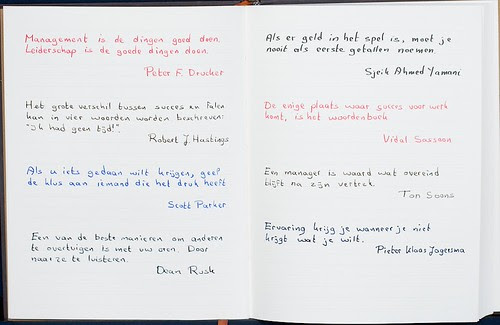 Management is de dingen goed doen.
Leiderschap is de goede dingen doen.
Peter F. Drucker
Het grote verschil tussen succes en falen
kan in vier woorden worden beschreven:
"Ik had geen tijd!".
Robert J. Hastings
Als u iets gedaan wilt krijgen, geef
de klus aan iemand die het druk heeft
Scott Parker
Een van de beste manieren om anderen
te overtuigen is met uw oren. Door
naar ze te luisteren.
Dean Rusk
Als er geld in het spel is, moet je
nooit als eerste getallen noemen.
Sjeik Ahmed Yamani
De enige plaats waar succes voor werk
komt, is het woordenboek
Vidal Sassoon
Een manager is waard wat overeind
blijft na zijn vertrek.
Ton Soons
Ervaring krijg je wanneer je niet
krijgt wat je wilt.
Pieter Klaas Jagersma